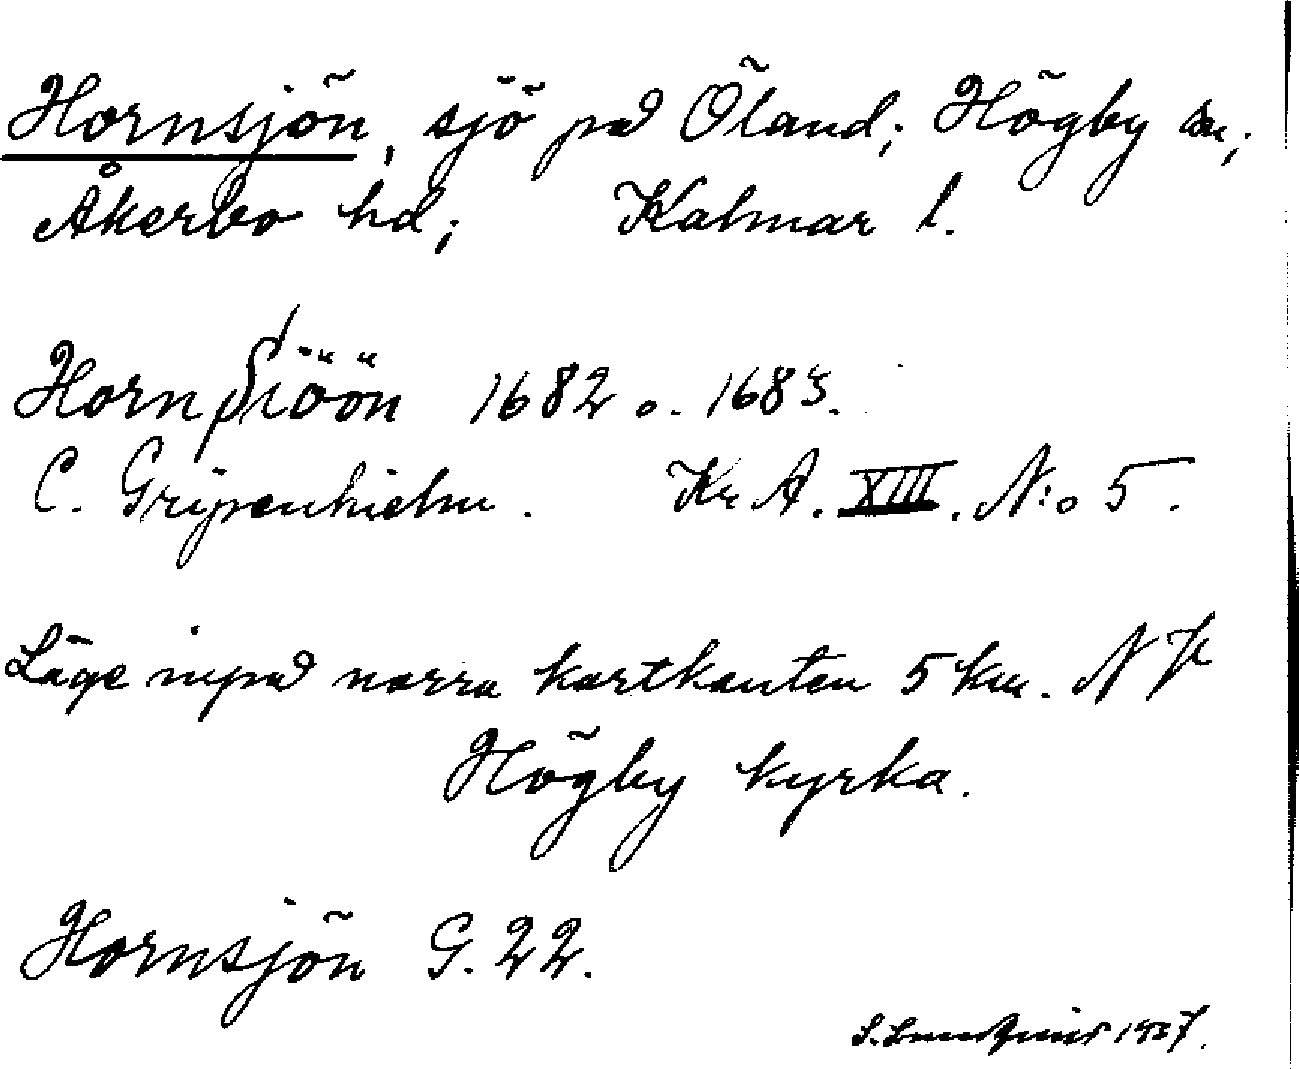 Hornsjön, sjö på Öland; Högby sn;
Åkerbo hd; Kalmar l.
Hornſiöön 1682 o. 1683.
C. Gripenhielm. Kr A. XIII. N:o 5.
Läge invid norra kartkanten 5 km. N fr
Högby kyrka.
Hornsjön G. 22.
S. Lundqvist 1937.